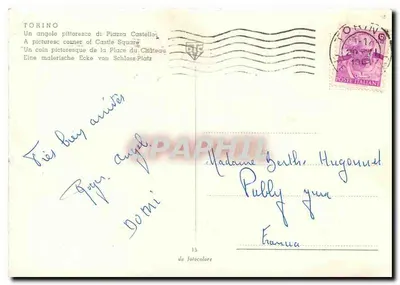 TORINO
Un angolo pittoresco di Piazza Castello
A picturesc corner of Castle Square
Un coin picturesque de la Place du Château
Eine malerische Ecke von Schloss-Platz
TORINO
POSTE ITALIANE
Très bien arrivés
Roger Angel
Domi
Madame Berthe Hugonnet
Publy Jura
Francia
14
da fotocolore